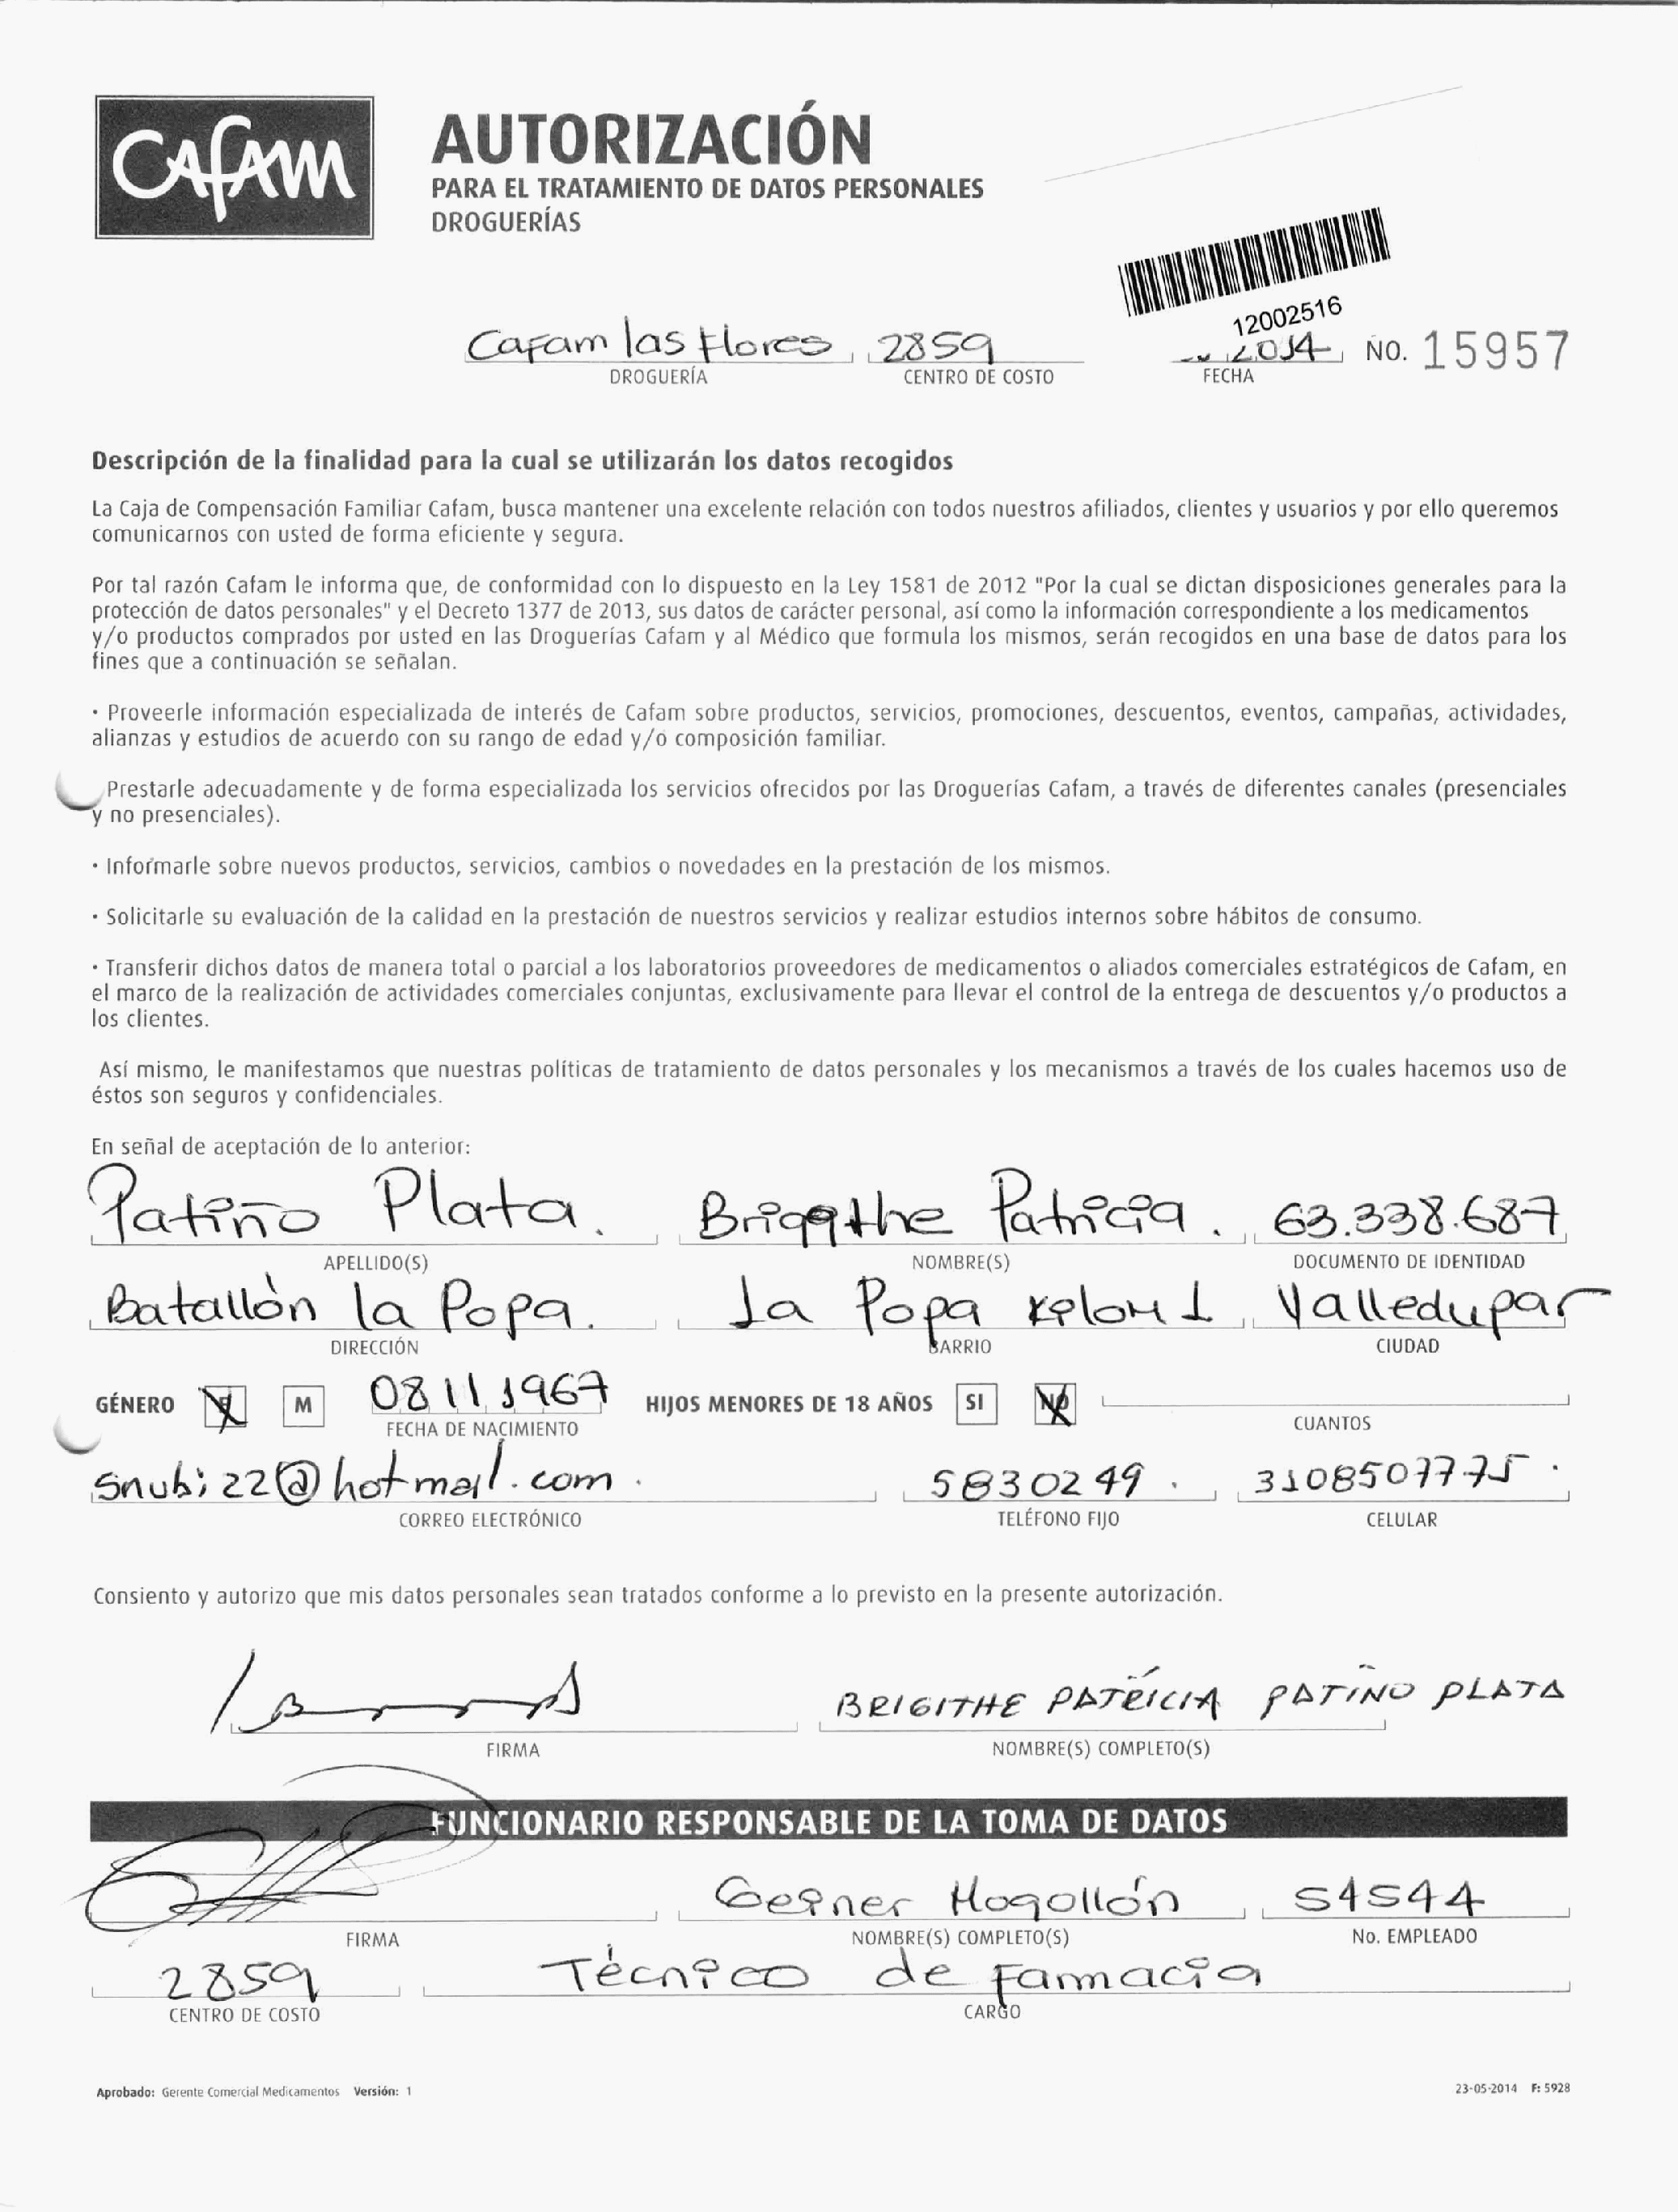 CAFAM
AUTORIZACIÓN
PARA EL TRATAMIENTO DE DATOS PERSONALES
DROGUERÍAS
12002516
Cafam las flores 2859 2014 NO. 15957
DROGUERÍA CENTRO DE COSTO FECHA
Descripción de la finalidad para la cual se utilizarán los datos recogidos
La Caja de Compensación Familiar Cafam, busca mantener una excelente relación con todos nuestros afiliados, clientes y usuarios y por ello queremos
comunicarnos con usted de forma eficiente y segura.
Por tal razón Cafam le informa que, de conformidad con lo dispuesto en la Ley 1581 de 2012 "Por la cual se dictan disposiciones generales para la
protección de datos personales" y el Decreto 1377 de 2013, sus datos de carácter personal, así como la información correspondiente a los medicamentos
y/o productos comprados por usted en las Droguerías Cafam y al Médico que formula los mismos, serán recogidos en una base de datos para los
fines que a continuación se señalan.
· Proveerle información especializada de interés de Cafam sobre productos, servicios, promociones, descuentos, eventos, campañas, actividades,
alianzas y estudios de acuerdo con su rango de edad y/o composición familiar.
Prestarle adecuadamente y de forma especializada los servicios ofrecidos por las Droguerías Cafam, a través de diferentes canales (presenciales
y no presenciales).
· Informarle sobre nuevos productos, servicios, cambios o novedades en la prestación de los mismos.
· Solicitarle su evaluación de la calidad en la prestación de nuestros servicios y realizar estudios internos sobre hábitos de consumo.
· Transferir dichos datos de manera total o parcial a los laboratorios proveedores de medicamentos o aliados comerciales estratégicos de Cafam, en
el marco de la realización de actividades comerciales conjuntas, exclusivamente para llevar el control de la entrega de descuentos y/o productos a
los clientes.
Así mismo, le manifestamos que nuestras políticas de tratamiento de datos personales y los mecanismos a través de los cuales hacemos uso de
éstos son seguros y confidenciales.
En señal de aceptación de lo anterior:
Patiño Plata. Brigithe Patricia. 63.338.687
APELLIDO(S) NOMBRE(S) DOCUMENTO DE IDENTIDAD
Batallón la Popa. La Popa Valledupar
DIRECCIÓN BARRIO CIUDAD
GÉNERO F M 08 11 1967 HIJOS MENORES DE 18 AÑOS SI NO
FECHA DE NACIMIENTO CUANTOS
snubi22@hotmail.com. 5830249. 3108507775.
CORREO ELECTRÓNICO TELÉFONO FIJO CELULAR
Consiento y autorizo que mis datos personales sean tratados conforme a lo previsto en la presente autorización.
BRIGITHE PATRÍCIA PATIÑO PLATA
FIRMA NOMBRE(S) COMPLETO(S)
FUNCIONARIO RESPONSABLE DE LA TOMA DE DATOS
Geiner Mogollón 54544
FIRMA NOMBRE(S) COMPLETO(S) No. EMPLEADO
2859 Técnico de Farmacia
CENTRO DE COSTO CARGO
Aprobado: Gerente Comercial Medicamentos Versión: 1 23-05-2014 F: 5928